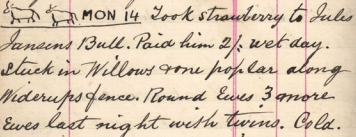 MON 14 Took strawberry to Jules
Jansens Bull. Paid him 2/: wet day.
Stuck in Willows & one poplar along
Widerups fence. Round Ewes 3 more
Ewes last night with twins. Cold.